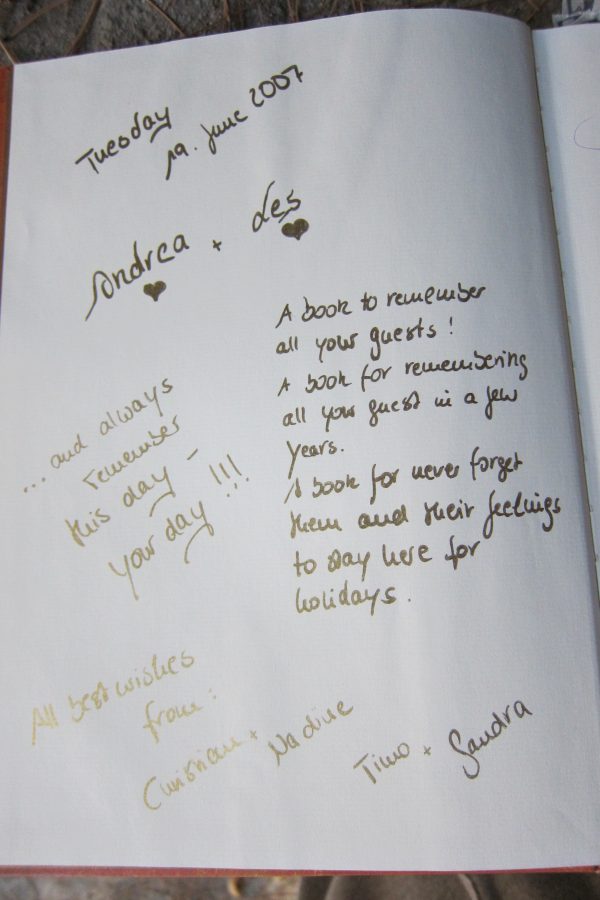 Tuesday
19. June 2007
Andrea + des
A book to remember
all your guests!
A book for remembering
all your guest in a few
years.
A book for never forget
them and their feelings
to stay here for
holidays.
... and always
remember
this day –
your day !!!
All best wishes
from:
Christian + Nadine
Timo + Sandra